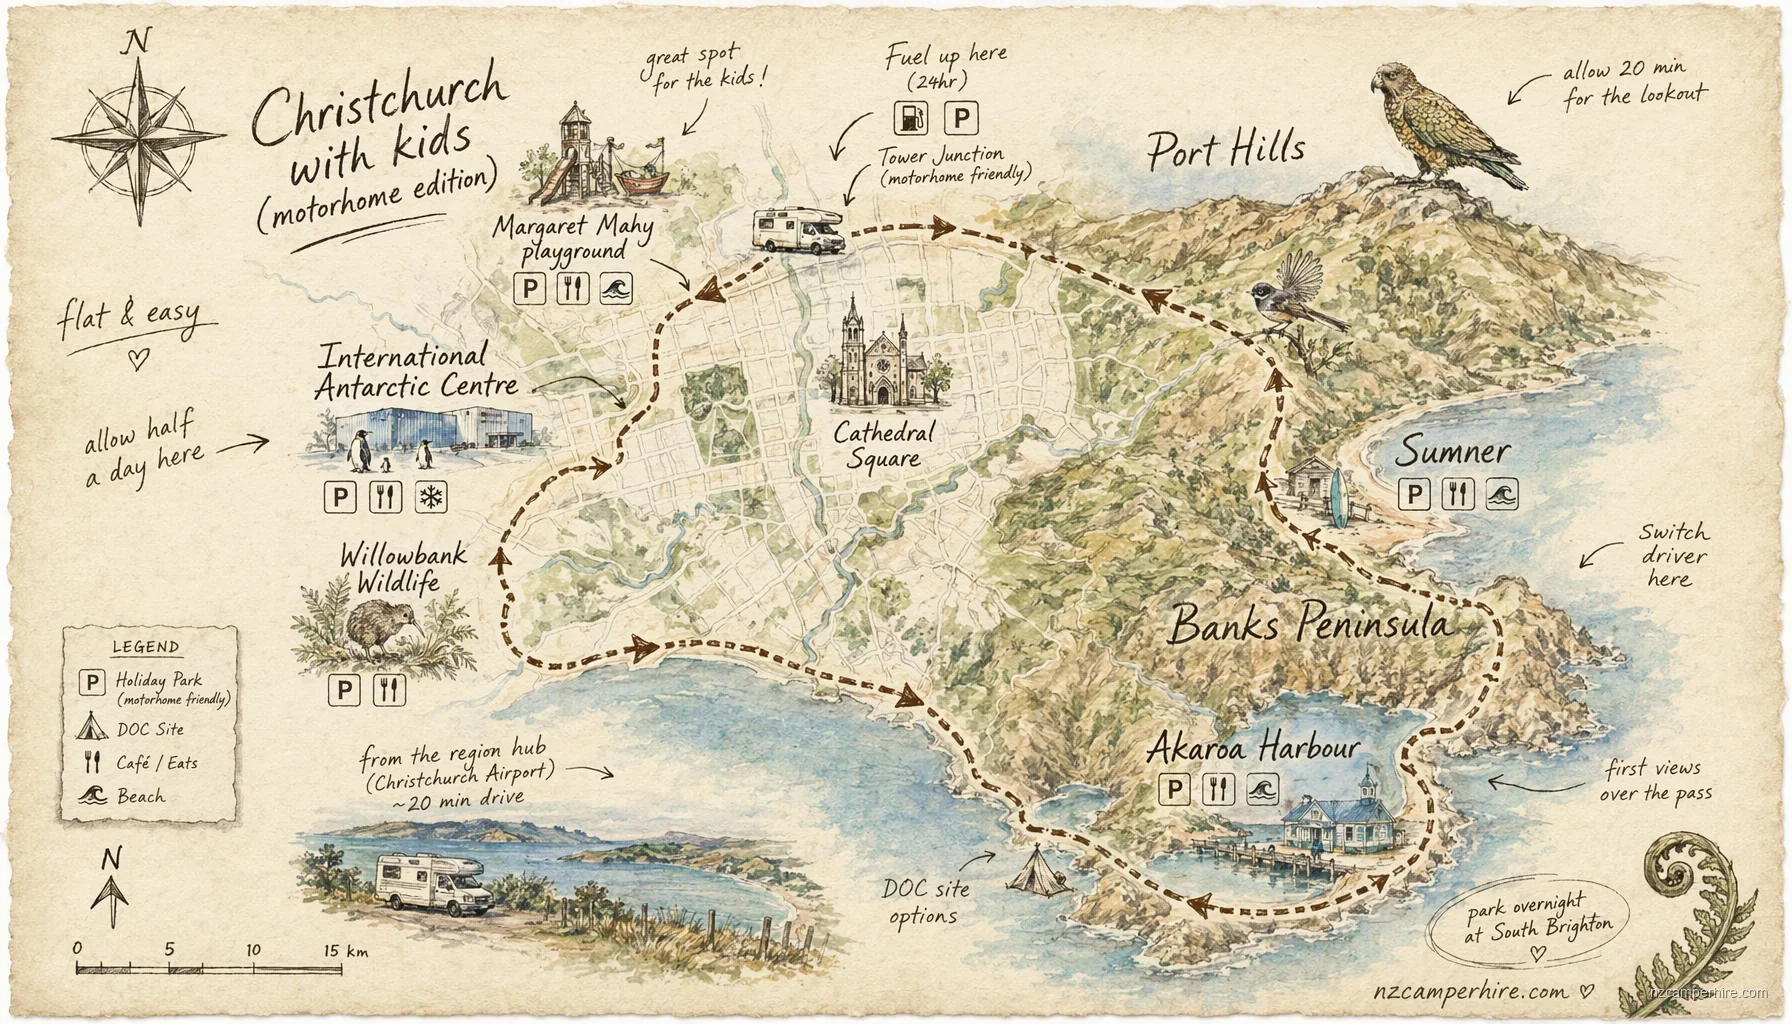 N
Christchurch
with kids
(motorhome edition)
great spot
for the kids!
Fuel up here
(24hr)
P
Tower Junction
(motorhome friendly)
Port Hills
allow 20 min
for the lookout
Margaret Mahy
playground
P
flat & easy
International
Antarctic Centre
allow half
a day here
P
Cathedral
Square
Sumner
P
Switch
driver
here
Willowbank
Wildlife
P
Banks Peninsula
LEGEND
P Holiday Park
(motorhome friendly)
DOC Site
Café / Eats
Beach
from the region hub
(Christchurch Airport)
~20 min drive
Akaroa Harbour
P
first views
over the pass
DOC site
options
park overnight
at South Brighton
N
0 5 10 15 km
nzcamperhire.com
nzcamperhire.com